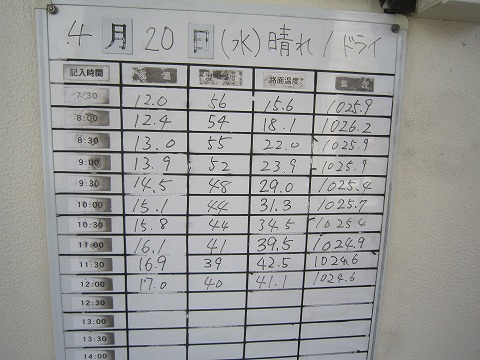 4月20日(水)晴れ/ドライ
記入時間 気温 湿度 路面温度 気圧
7:30 12.0 56 15.6 1025.9
8:00 12.4 54 18.1 1026.2
8:30 13.0 55 22.0 1025.9
9:00 13.9 52 23.9 1025.9
9:30 14.5 48 29.0 1025.4
10:00 15.1 44 31.3 1025.7
10:30 15.8 44 34.5 1025.4
11:00 16.1 41 39.5 1024.9
11:30 16.9 39 42.5 1024.6
12:00 17.0 40 41.1 1024.6
12:30
13:00
13:30
14:00